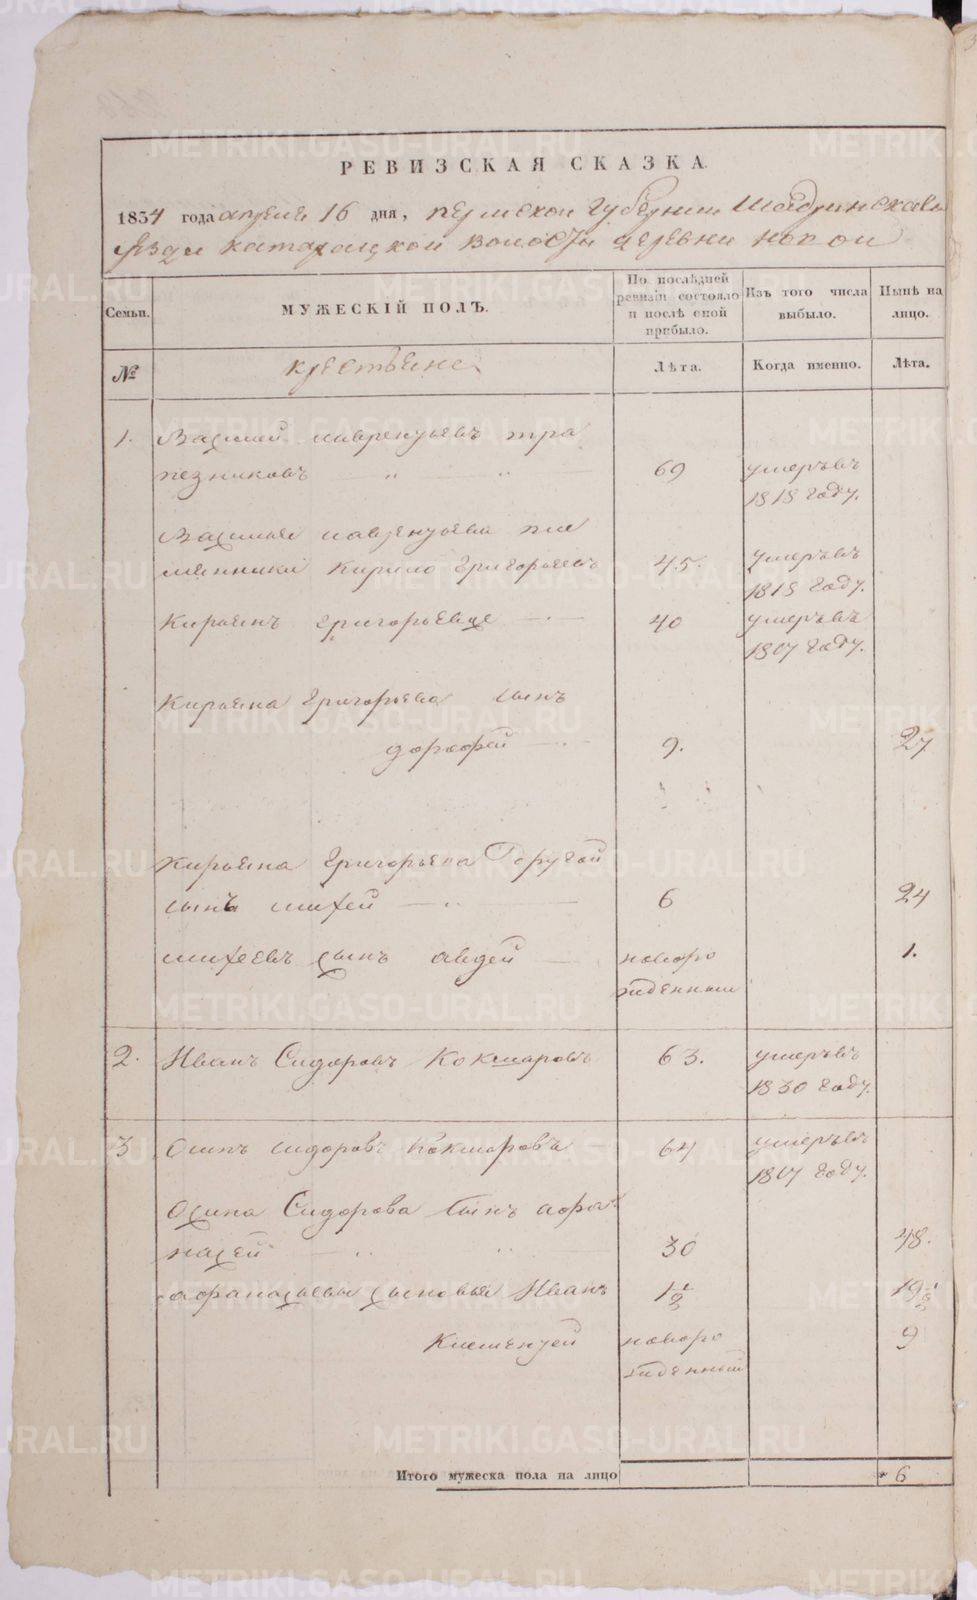 РЕВИЗСКАЯ СКАЗКА
1834 года апреля 16 дня, пермской губернии Шадринскаго
уезда катарацкой волости деревни
Семьи.
МУЖЕСКІЙ ПОЛЪ.
По послѣдней ревизіи состояло и послѣ оной прибыло.
Изъ того числа выбыло.
Нынѣ на лицо.
№
крестьяне
Лѣта.
Когда именно.
Лѣта.
1. Василей лаврентьевъ тра
пезниковъ 69 умеръвъ
1818 году.
Василья лаврентьева пле
мянники Кирило григорьевъ 45. умеръвъ
1815 году.
Кирьянъ григорьевъ 40 умеръвъ
году.
Кирьяна григорьева сынъ
дорофей 9. 27
Кирьяна григорьева другой
сынъ михей 6 24
михеевъ сынъ авдей новоро 1.
жденный
2. Иванъ Сидоровъ Кокшаровъ 63. умеръвъ
1830 году.
3 Осипъ сидоровъ Кокшаровъ 64 умеръвъ
году.
Осипа Сидорова сынъ афа
насей 30 48.
афанасьевы сыновья Иванъ 1½ 19½
новоро 9
жденный
Итого мужеска пола на лицо 6
METRIKI.GASO-URAL.RU